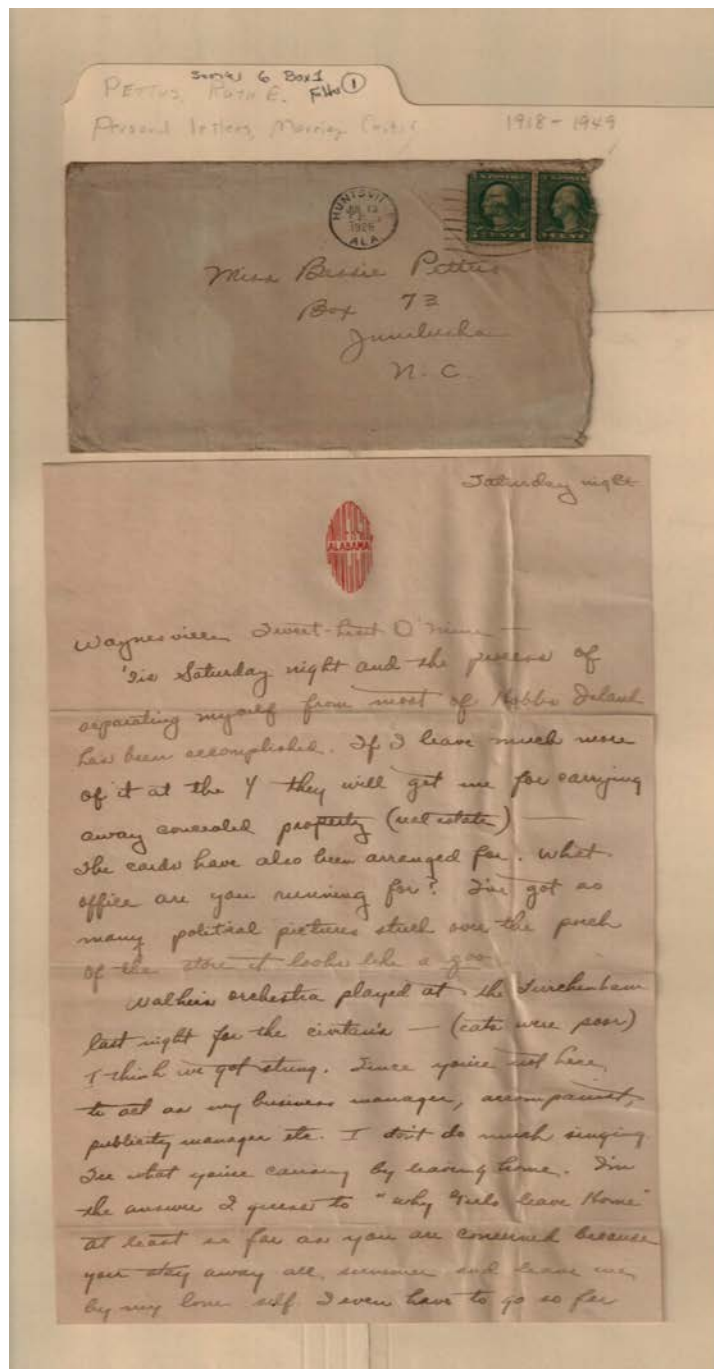 Series 6 Box 1
PETTUS, RUTH E. Folder 1
Personal letters, Marriage 1918-1949
HUNTSVILLE
1926
ALA.
Miss Bessie Pettus
Box 73
Junaluska
N. C.
Saturday night
ALABAMA
Waynesville Sweet-heart O'mine —
'Tis Saturday night and the process of
separating myself from most of Hobbs Island
has been accomplished. If I leave much more
of it at the Y they will get me for carrying
away concealed property (real estate) —
The cards have also been arranged for. What
office are you running for? I've got so
many political pictures stuck over the porch
of the store it looks like a zoo
Walkers orchestra played at the
last night for the civitan's — (eats were poor)
I think we got stung. Since you're not here
to act as my business manager, accompanist,
publicity manager etc. I don't do much singing
See what you're causing by leaving home. I'm
the answer I guess to "Why Girls leave Home"
at least so far as you are concerned because
you stay away all summer and leave me
by my lone self. I even have to go so far